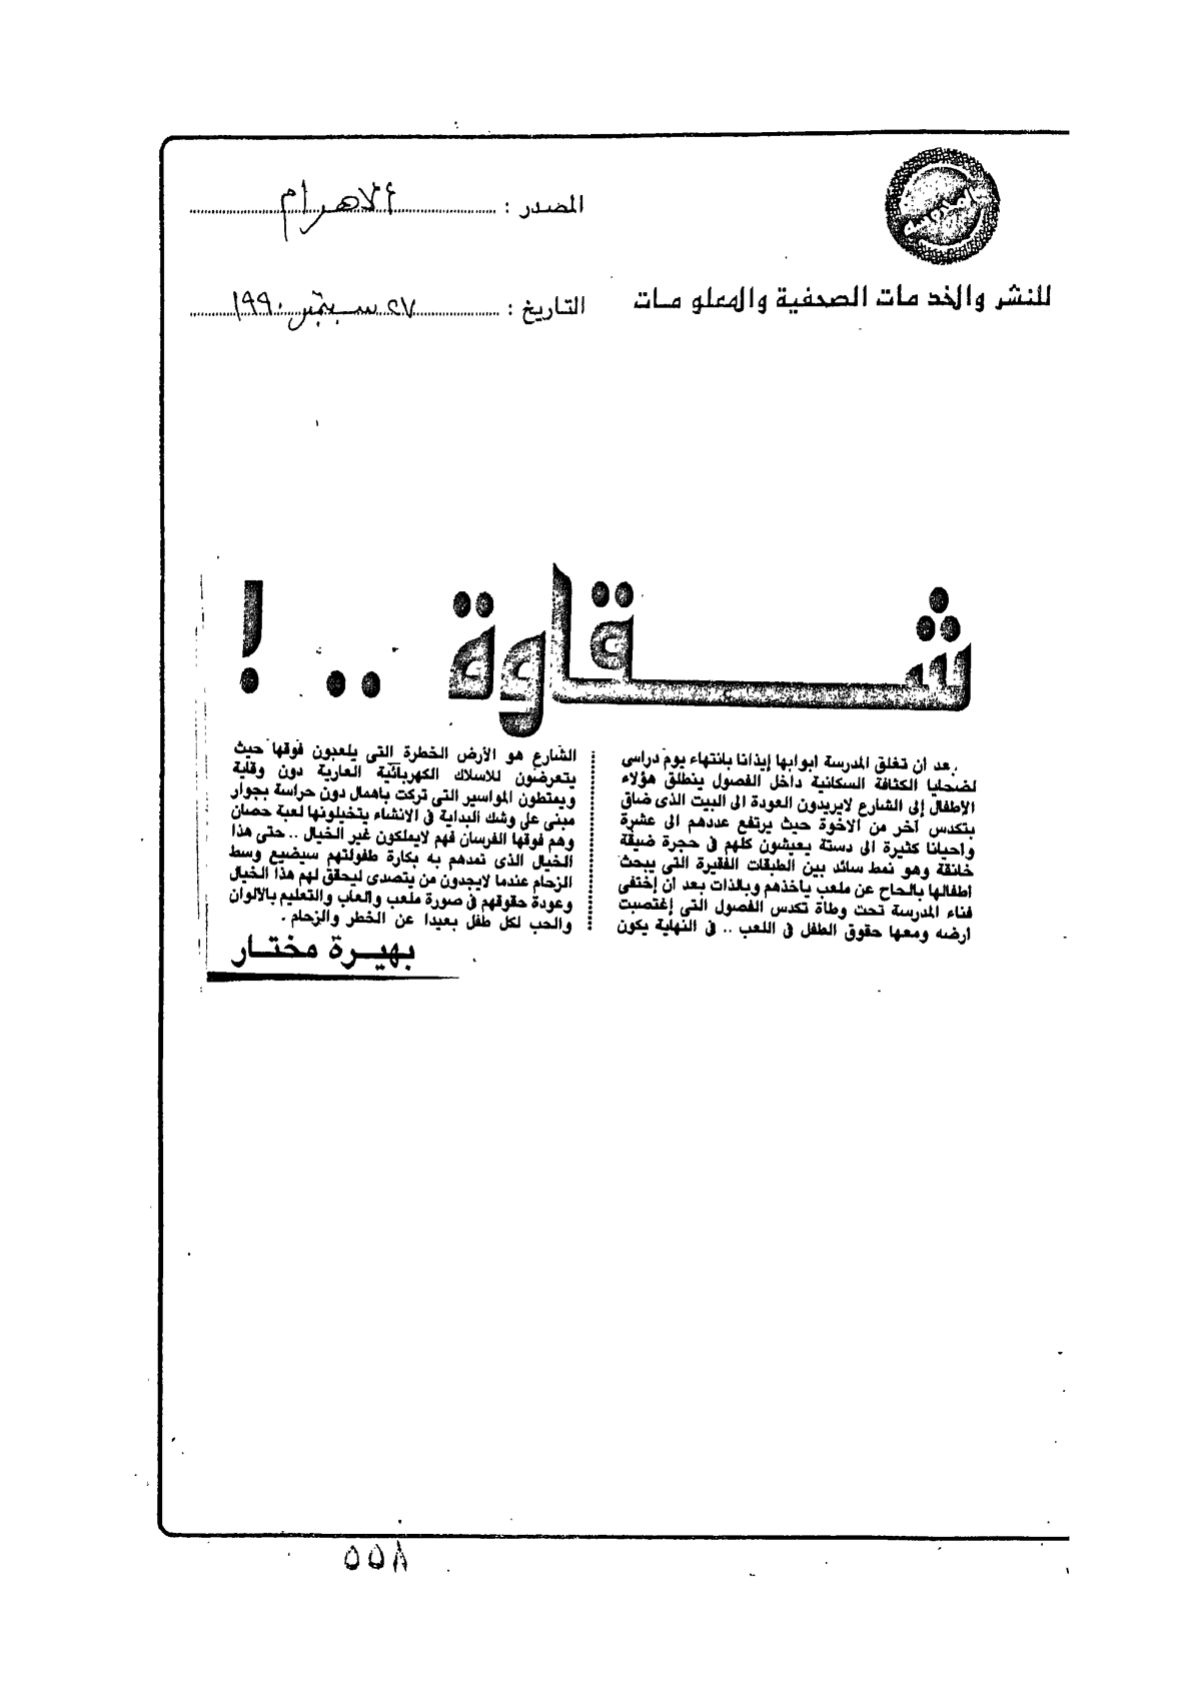 المصدر : الاهرام
للنشر والخدمات الصحفية والمعلومات
التاريخ : ٢٧ سبتمبر ١٩٩٠
شقاوة .. !
بعد ان تغلق المدرسة ابوابها إيذانا بانتهاء يوم دراسى
لضحايا الكثافة السكانية داخل الفصول ينطلق هؤلاء
الإطفال إلى الشارع لايريدون العودة الى البيت الذى ضاق
بتكدس آخر من الاخوة حيث يرتفع عددهم الى عشرة
واحيانا كثيرة الى دستة يعيشون كلهم فى حجرة ضيقة
خانقة وهو نمط سائد بين الطبقات الفقيرة التى يبحث
اطفالها بالحاح عن ملعب ياخذهم وبالذات بعد ان إختفى
فناء المدرسة تحت وطاة تكدس الفصول التى إغتصبت
ارضه ومعها حقوق الطفل فى اللعب .. فى النهاية يكون
الشارع هو الأرض الخطرة التى يلعبون فوقها حيث
يتعرضون للاسلاك الكهربائية العارية دون وقاية
ويمتطون المواسير التى تركت باهمال دون حراسة بجوار
مبنى على وشك البداية فى الانشاء يتخيلونها لعبة حصان
وهم فوقها الفرسان فهم لايملكون غير الخيال .. حتى هذا
الخيال الذى نمدهم به بكارة طفولتهم سيضيع وسط
الزحام عندما لايجدون من يتصدى ليحقق لهم هذا الخيال
وعودة حقوقهم فى صورة ملعب والعاب والتعليم بالالوان
والحب لكل طفل بعيدا عن الخطر والزحام .
بهيرة مختار
٥٥٨